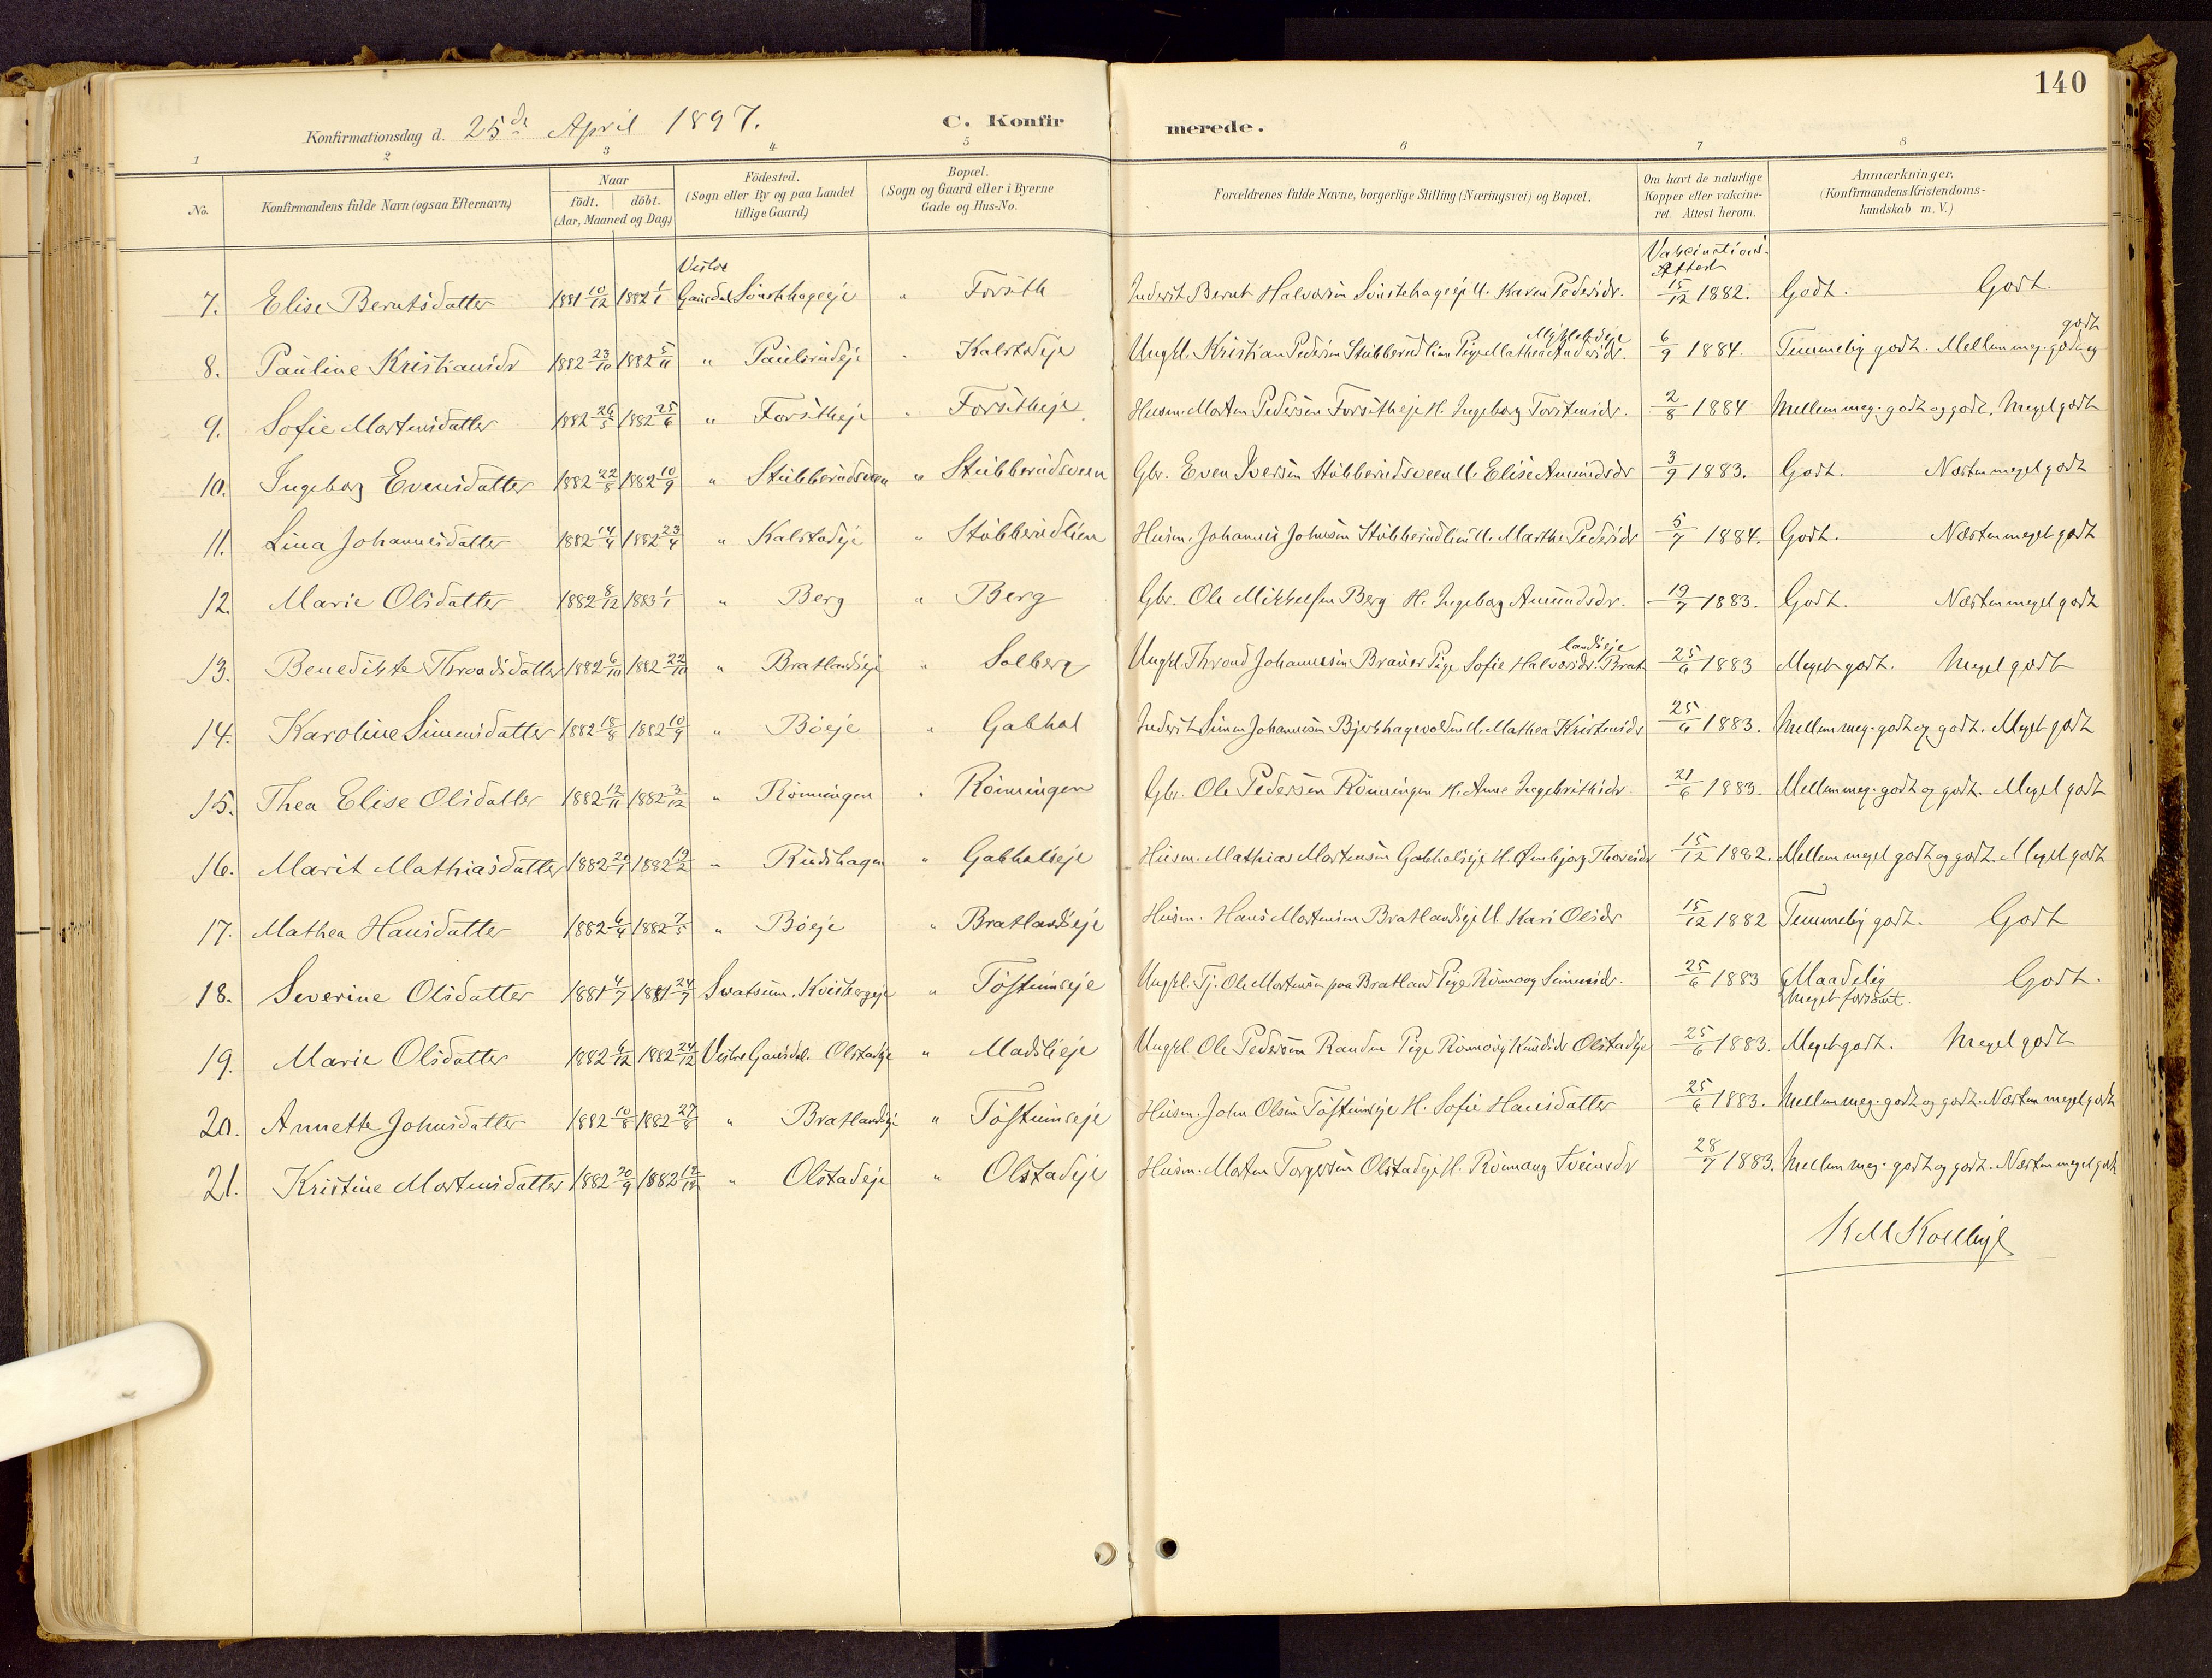 140
Konfirmationsdag d. 25de April 1897. C. Konfirmerede.
1 2 3 4 5 6 7 8
No. Konfirmandens fulde Navn (ogsaa Efternavn) Naar födt. döbt. (Aar, Maaned og Dag) Födested. (Sogn eller By og paa Landet tillige Gaard) Bopæl. (Sogn og Gaard eller i Byerne Gade og Hus-No. Forældrenes fulde Navne, borgerlige Stilling (Næringsvei) og Bopæl. Om havt de naturlige Kopper eller vakcineret. Attest herom. Anmærkninger. (Konfirmandens Kristendomskundskab m. V.)
Vakcinations-Attest
7. Elise Berntsdatter 1881 10/12 1882 1/1 Vestre Gausdal Sönstehageeje " Forseth Inderst Bernt Halvorsen Sönstehageeje H. Karen Pedersdr. 15/12 1882. Godt. Godt.
8. Pauline Kristiansdr 1882 23/10 1882 5/11 " Paulsrudeje " Kalstadeje Ungkl. Kristian Pedersen Stubberudlien Pige Mathea Andersdr. 6/9 1884. Temmelig godt. Mellem meg. godt og godt
9. Sofie Mortensdatter 1882 26/5 1882 25/6 " Forsetheje " Forsetheje Husm. Morten Pedersen Forsetheje H. Ingeborg Torstensdr. 2/8 1884 Mellem meg. godt og godt. Meget godt
10. Ingeborg Evensdatter 1882 22/8 1882 10/9 " Stubberudsveen " Stubberudsveen Gbr. Even Iversen Stubberudsveen H. Elise Amundsdr 3/9 1883. Godt. Næsten meget godt
11. Lina Johannesdatter 1882 14/4 1882 23/4 " Kalstadeje " Stubberudlien Husm. Johannes Johnsen Stubberudlien H. Marthe Pedersdr 5/7 1884. Godt. Næsten meget godt
12. Marie Olsdatter 1882 8/12 1883 1/1 " Berg " Berg Gbr. Ole Mikkelsen Berg H. Ingeborg Amundsdr. 19/7 1883. Godt. Næsten meget godt
13. Benedikte Throndsdatter 1882 6/10 1882 22/10 " Bratlandseje " Solberg Ungkl. Thrond Johannessen Brauer Pige Sofie Halvorsdr. Bratlandseje 25/6 1883 Meget godt. Meget godt
14. Karoline Simensdatter 1882 18/8 1882 10/9 " Böeje " Gakhol Inderst Simen Johannesen Bjerkhagevolden H. Mathea Kristensdr 25/6 1883. Mellem meg. godt og godt. Meget godt
15. Thea Elise Olsdatter 1882 12/11 1882 3/12 " Rönningen " Rönningen Gbr. Ole Pedersen Rönningen H. Anne Ingebrithsdr 21/6 1883. Mellem meg. godt og godt. Meget godt
16. Marit Mathiasdatter 1882 20/1 1882 19/2 " Rudshagen " Gakholseje Husm. Mathias Mortensen Gakholseje H. Ombjörg Thoresdr 15/12 1882. Mellem meget godt og godt. Meget godt
17. Mathea Hansdatter 1882 6/4 1882 7/5 " Böeje " Bratlandseje Husm. Hans Mortensen Bratlandseje H. Kari Olsdr 15/12 1882 Temmelig godt. Godt
18. Severine Olsdatter 1881 4/7 1881 24/7 Svatsum. Kvisbergeje " Töstumseje Ungkl. Tj. Ole Mortensen paa Bratland Pige Rönnaug Simensdr. 25/6 1883 Maadelig Meget forsömt. Godt.
19. Marie Olsdatter 1882 6/12 1882 24/12 Vestre Gausdal. Olstadeje " Madslieje Ungkl. Ole Pedersen Randen Pige Rönnaug Knudsdr Olstadeje 25/6 1883. Meget godt. Meget godt
20. Annette Johnsdatter 1882 10/8 1882 27/8 " Bratlandseje " Töstumseje Husm. John Olsen Töstumseje H. Sofie Hansdatter 25/6 1883. Mellem meg. godt og godt. Næsten meget godt
21. Kristine Mortensdatter 1882 20/9 1882 12/12 " Olstadeje " Olstadeje Husm. Morten Torgersen Olstadeje H. Rönnaug Sveinsdr 28/7 1883. Mellem meg. godt og godt. Næsten meget godt